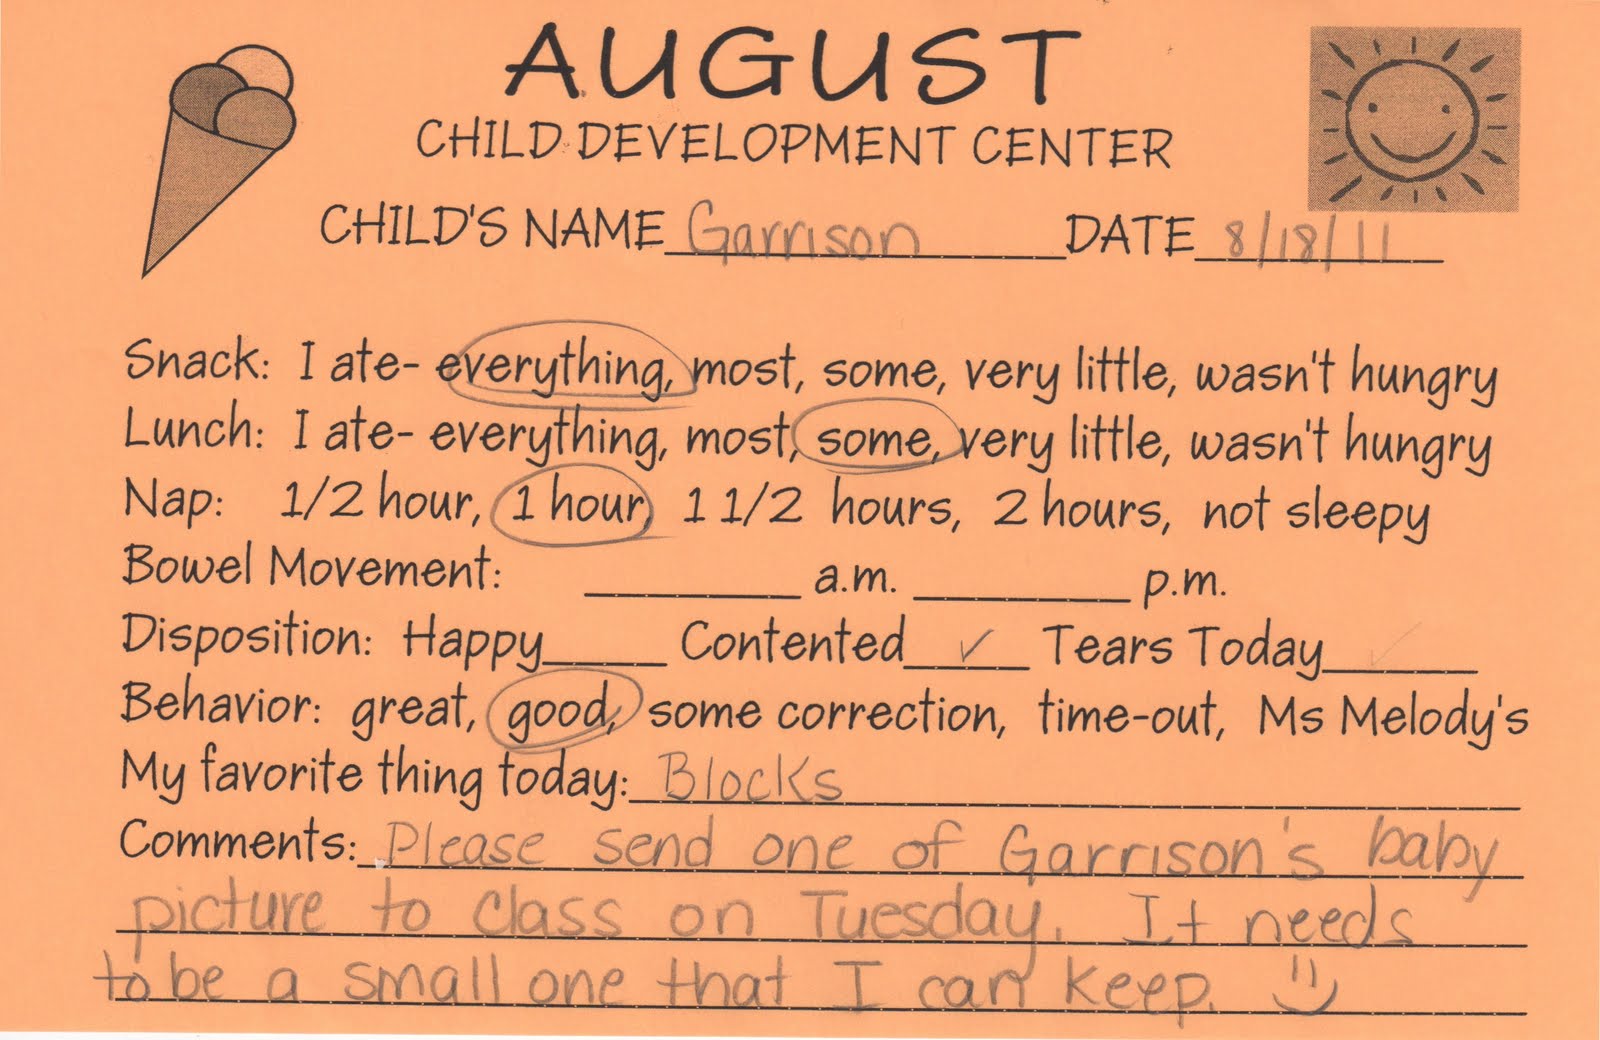 AUGUST
CHILD DEVELOPMENT CENTER
CHILD'S NAME Garrison DATE 8/18/11
Snack: I ate- everything, most, some, very little, wasn't hungry
Lunch: I ate- everything, most, some, very little, wasn't hungry
Nap: 1/2 hour, 1 hour, 1 1/2 hours, 2 hours, not sleepy
Bowel Movement: ________ a.m. ________ p.m.
Disposition: Happy____ Contented ✓ Tears Today____
Behavior: great, good, some correction, time-out, Ms Melody's
My favorite thing today: Blocks
Comments: Please send one of Garrison's baby
picture to class on Tuesday. It needs
to be a small one that I can keep. :)